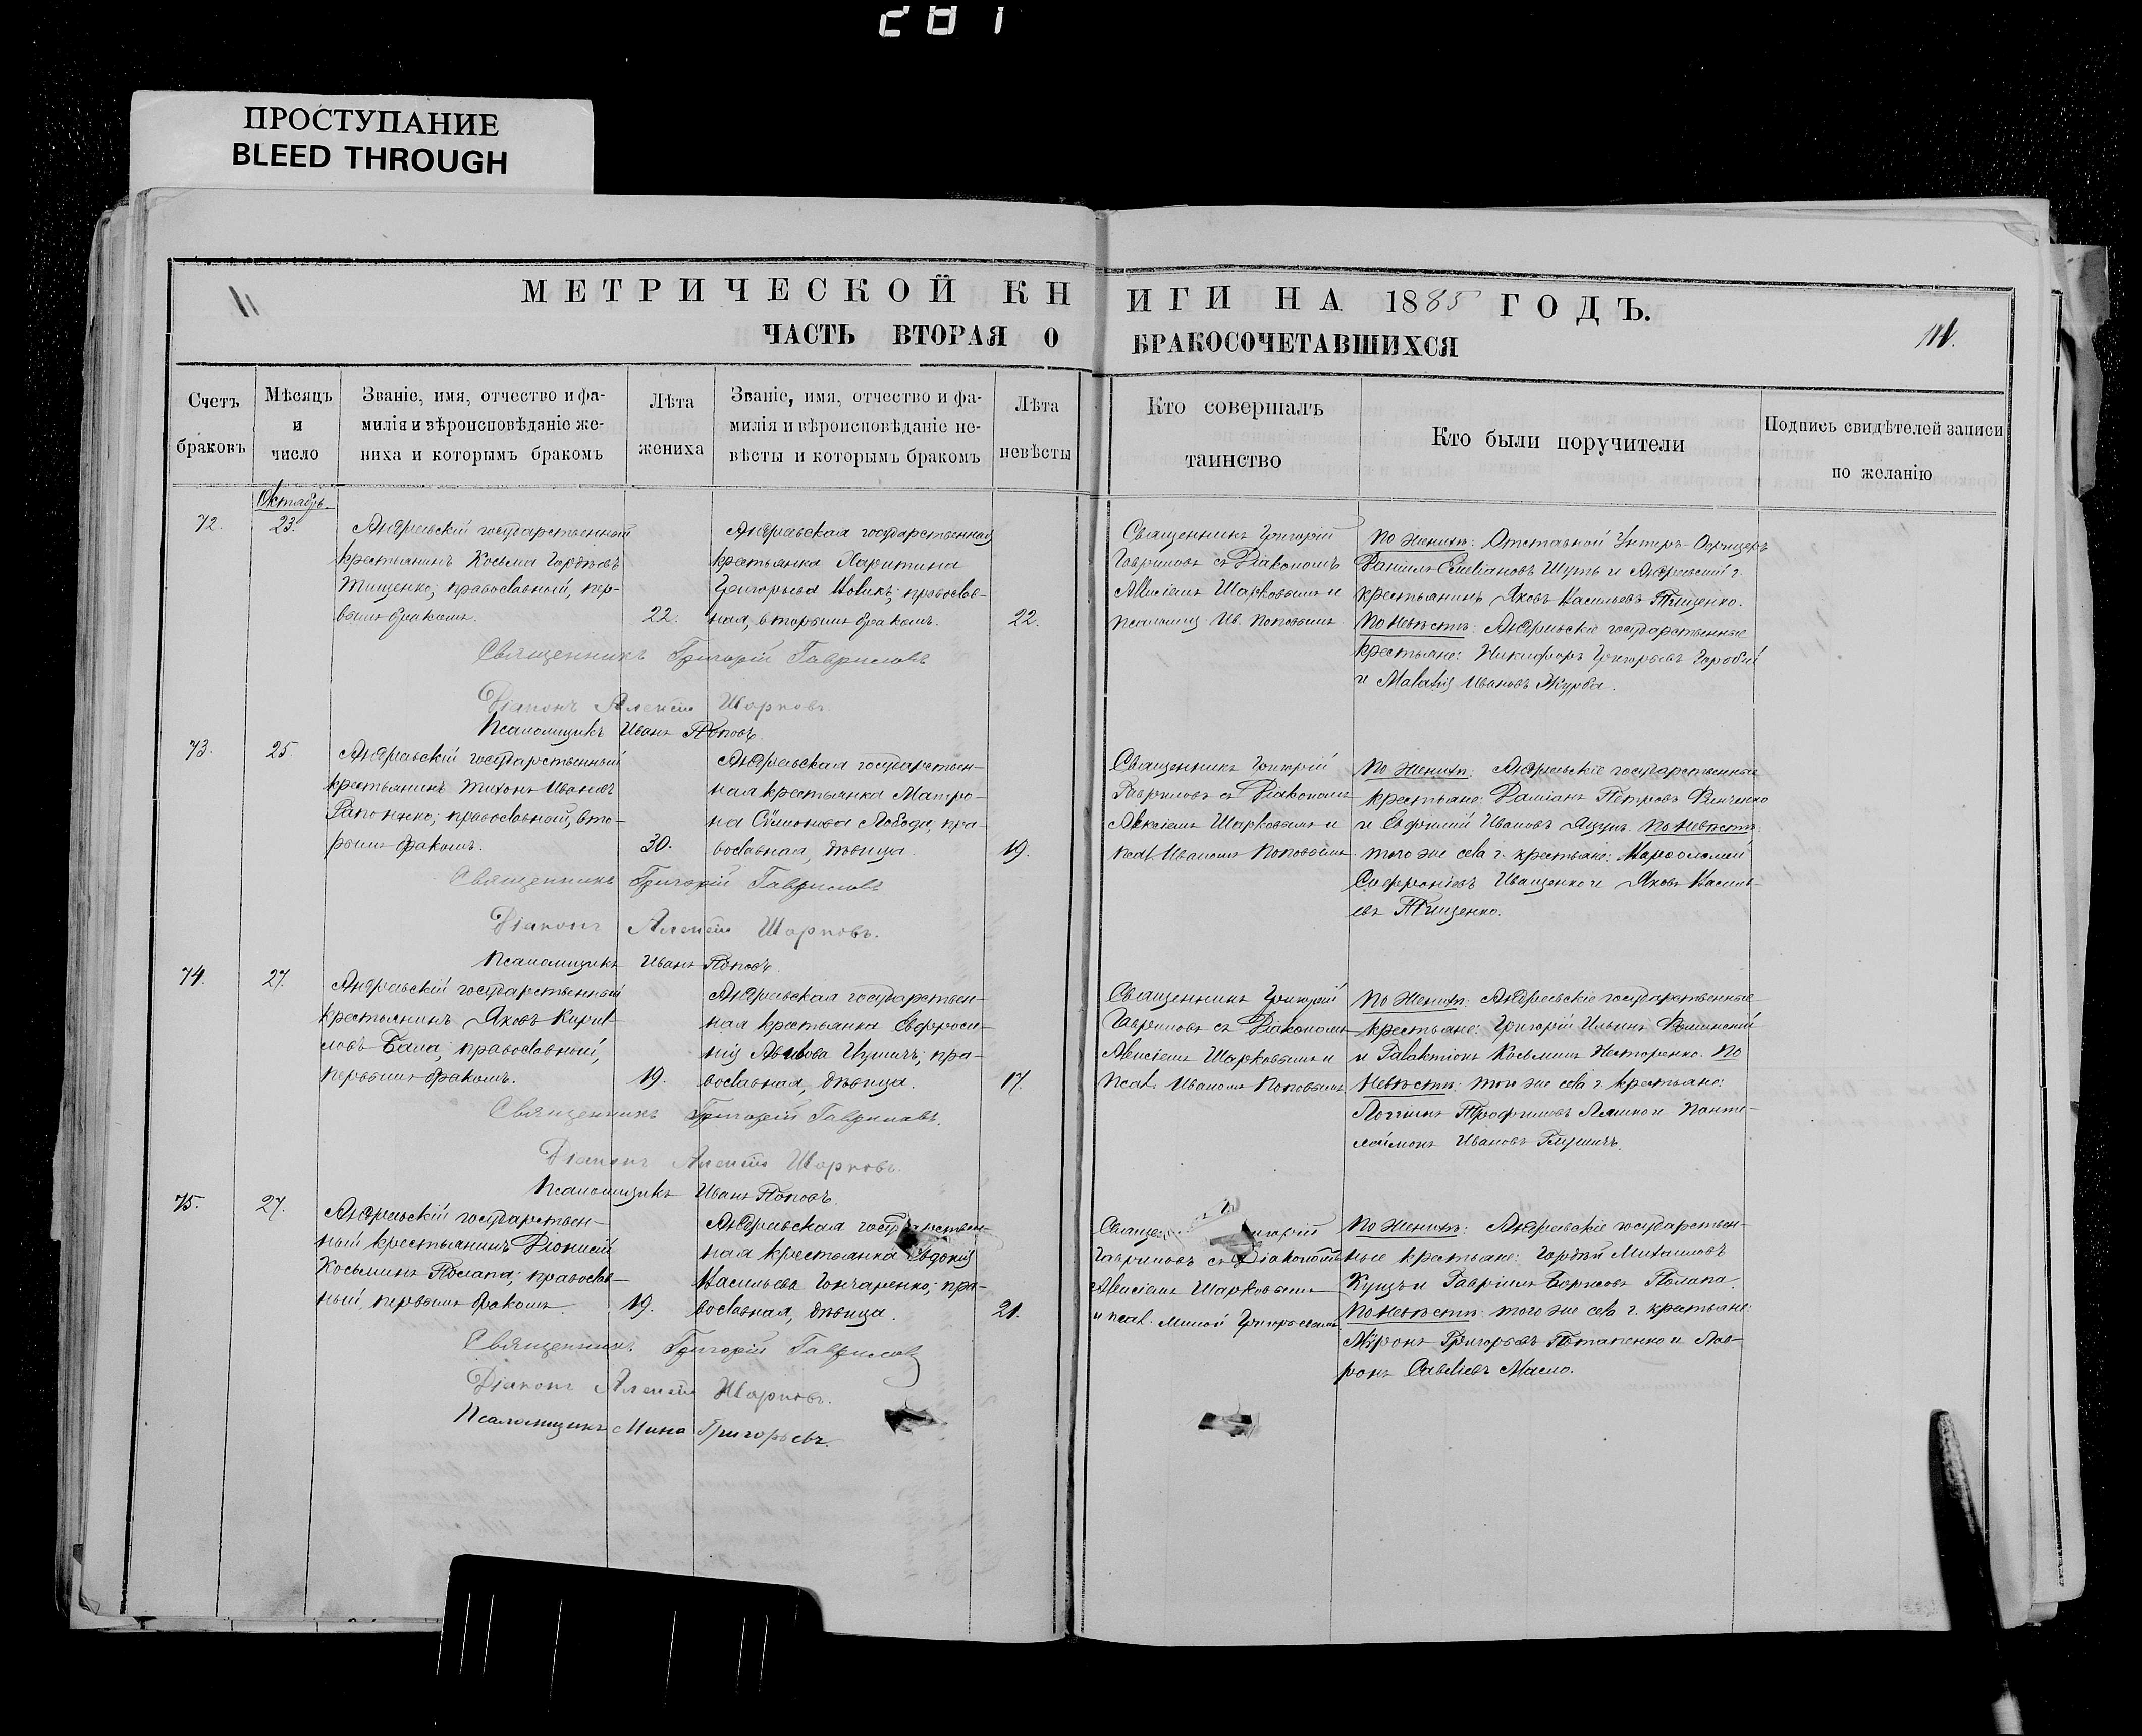 281
ПРОСТУПАНИЕ
BLEED THROUGH
МЕТРИЧЕСКОЙ КНИГИ НА 1885 ГОДЪ.
ЧАСТЬ ВТОРАЯ О БРАКОСОЧЕТАВШИХСЯ
Счетъ браковъ
Мѣсяцъ и число
Званіе, имя, отчество и фа-
милія и вѣроисповѣданіе же-
ниха и которымъ бракомъ
Лѣта жениха
Званіе, имя, отчество и фа-
милія и вѣроисповѣданіе не-
вѣсты и которымъ бракомъ
Лѣта невѣсты
Кто совершалъ
таинство
Кто были поручители
Подпись свидѣтелей записи
по желанію
Октябрь.
72.
23.
Андреевскій государственный
крестьянинъ Косьма Гордѣевъ
Тищенко; православный, пер-
вымъ бракомъ.
22.
Андреевская государственная
крестьянка Харитина
Григорьева Новикъ; православ-
ная, вторымъ бракомъ.
22.
Священникъ Григорій
Гавриловъ съ Діакономъ
Алексіемъ Шарковымъ и
псаломщ. Ив. Поповымъ
По женихѣ: Отставной Унтеръ-Офицеръ
Даніилъ Емеліановъ Шуть и Андреевскій г.
крестьянинъ Яковъ Васильевъ Тищенко.
По невѣстѣ: Андреевскіе государственные
крестьяне: Никифоръ Григорьевъ Горобій
и Малахій Ивановъ Журба.
Священникъ Григорій Гавриловъ
Діаконъ Алексій Шарковъ.
Псаломщикъ Иванъ Поповъ.
73.
25.
Андреевскій государственный
крестьянинъ Тихонъ Ивановъ
Гапоненко; православный, вто-
рымъ бракомъ.
30.
Андреевская государствен-
ная крестьянка Матро-
на Сѵмонова Лобода; пра-
вославная, дѣвица.
19.
Священникъ Григорій
Гавриловъ съ Діакономъ
Алексіемъ Шарковымъ и
псал. Иваномъ Поповымъ.
По женихѣ: Андреевскіе государственные
крестьяне: Даміанъ Петровъ
и Евфимій Ивановъ Яцунъ. По невѣстѣ:
того же села г. крестьяне: Варѳоломей
Софроніевъ Иващенко и Яковъ Василь-
евъ Тищенко.
Священникъ Григорій Гавриловъ
Діаконъ Алексій Шарковъ.
Псаломщикъ Иванъ Поповъ.
74.
27.
Андреевскій государственный
крестьянинъ Яковъ Кирил-
ловъ Бала; православный,
первымъ бракомъ.
19.
Андреевская государствен-
ная крестьянка Евфроси-
нія; пра-
вославная, дѣвица.
17.
Священникъ Григорій
Гавриловъ съ Діакономъ
Алексіемъ Шарковымъ и
псал. Иваномъ Поповымъ.
По женихѣ: Андреевскіе государственные
крестьяне: Григорій Ильинъ
и Галактіонъ Косьминъ Нестеренко. По
невѣстѣ: того же села г. крестьяне:
Логгинъ Трофимовъ Ляшко и Панте-
леимонъ Ивановъ
Священникъ Григорій Гавриловъ.
Діаконъ Алексій Шарковъ.
Псаломщикъ Иванъ Поповъ.
75.
27.
Андреевскій государствен-
ный крестьянинъ Діонисій
Косьминъ Полапа; православ-
ный, первымъ бракомъ.
19.
Андреевская государствен-
ная крестьянка Евдокія
Васильева Гончаренко; пра-
вославная, дѣвица.
21.
Гавриловъ съ Діакономъ
Алексіемъ Шарковымъ
и псал. Миной Григорьевымъ.
По женихѣ: Андреевскіе государствен-
ные крестьяне: Гордѣй Михаиловъ
Куцъ и Гавріилъ Борисовъ Полапа.
По невѣстѣ: того же села г. крестьяне:
Мѵронъ Григорьевъ Потапенко и Лав-
ронъ Савеліевъ Масло.
Священникъ Григорій Гавриловъ
Діаконъ Алексій Шарковъ.
Псаломщикъ Мина Григорьевъ.